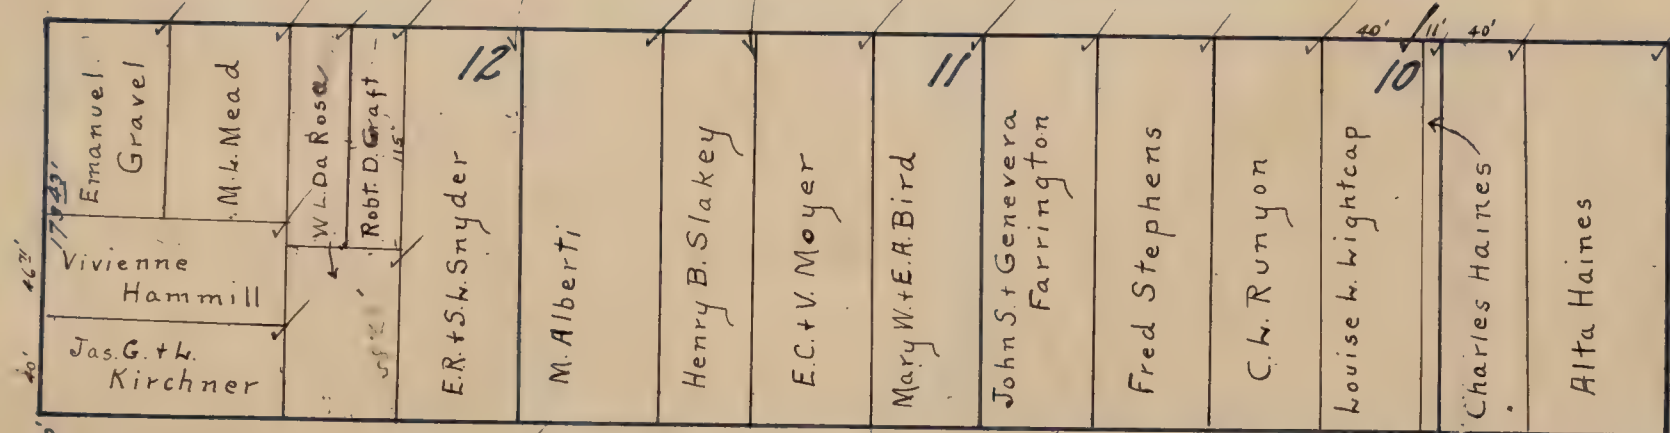 Emanuel
Gravel
M.L. Mead
W.L. Da Rosa
Robt. D. Graft
115'
12
E.R. + S.L. Snyder
M. Alberti
Henry B. Slakey
E.C. + V. Moyer
11
Mary W. + E.A. Bird
John S. + Genevera
Farrington
Fred Stephens
C.L. Runyon
40'
11'
40'
10
Louise L. Lightcap
Charles Haines
Alta Haines
Vivienne
Hammill
46.71'
Jas. G. + L.
Kirchner
40'